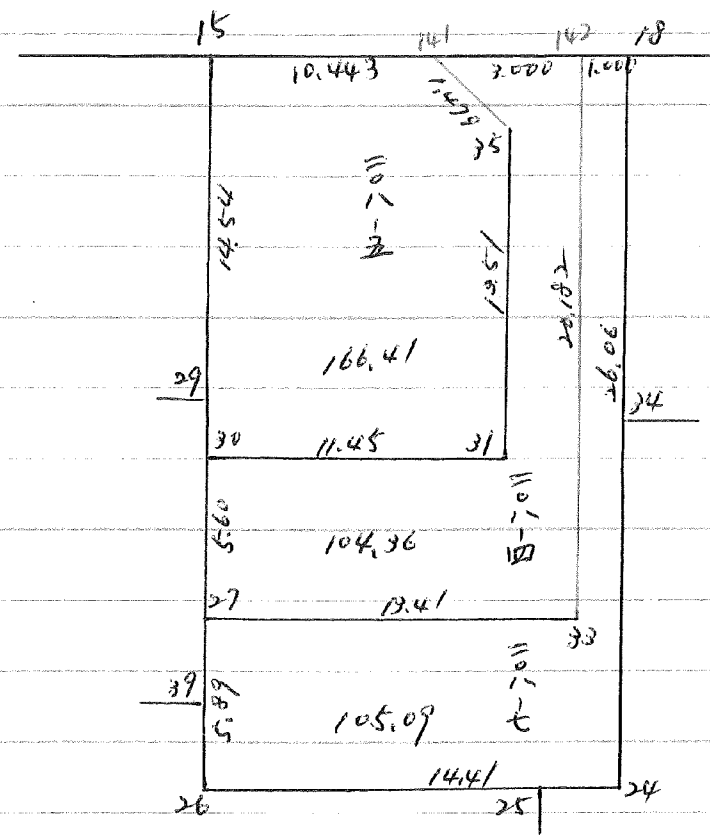 15 141 142 18
10.443 3.000 1.000
1.479
35
二〇八-五
14.54
13.51
20.182
26.06
166.41
29
34
30 11.45 31
5.60
104.36
二〇八-四
27 13.41
33
39
5.89
105.09
二〇八-七
14.41
26 25 24